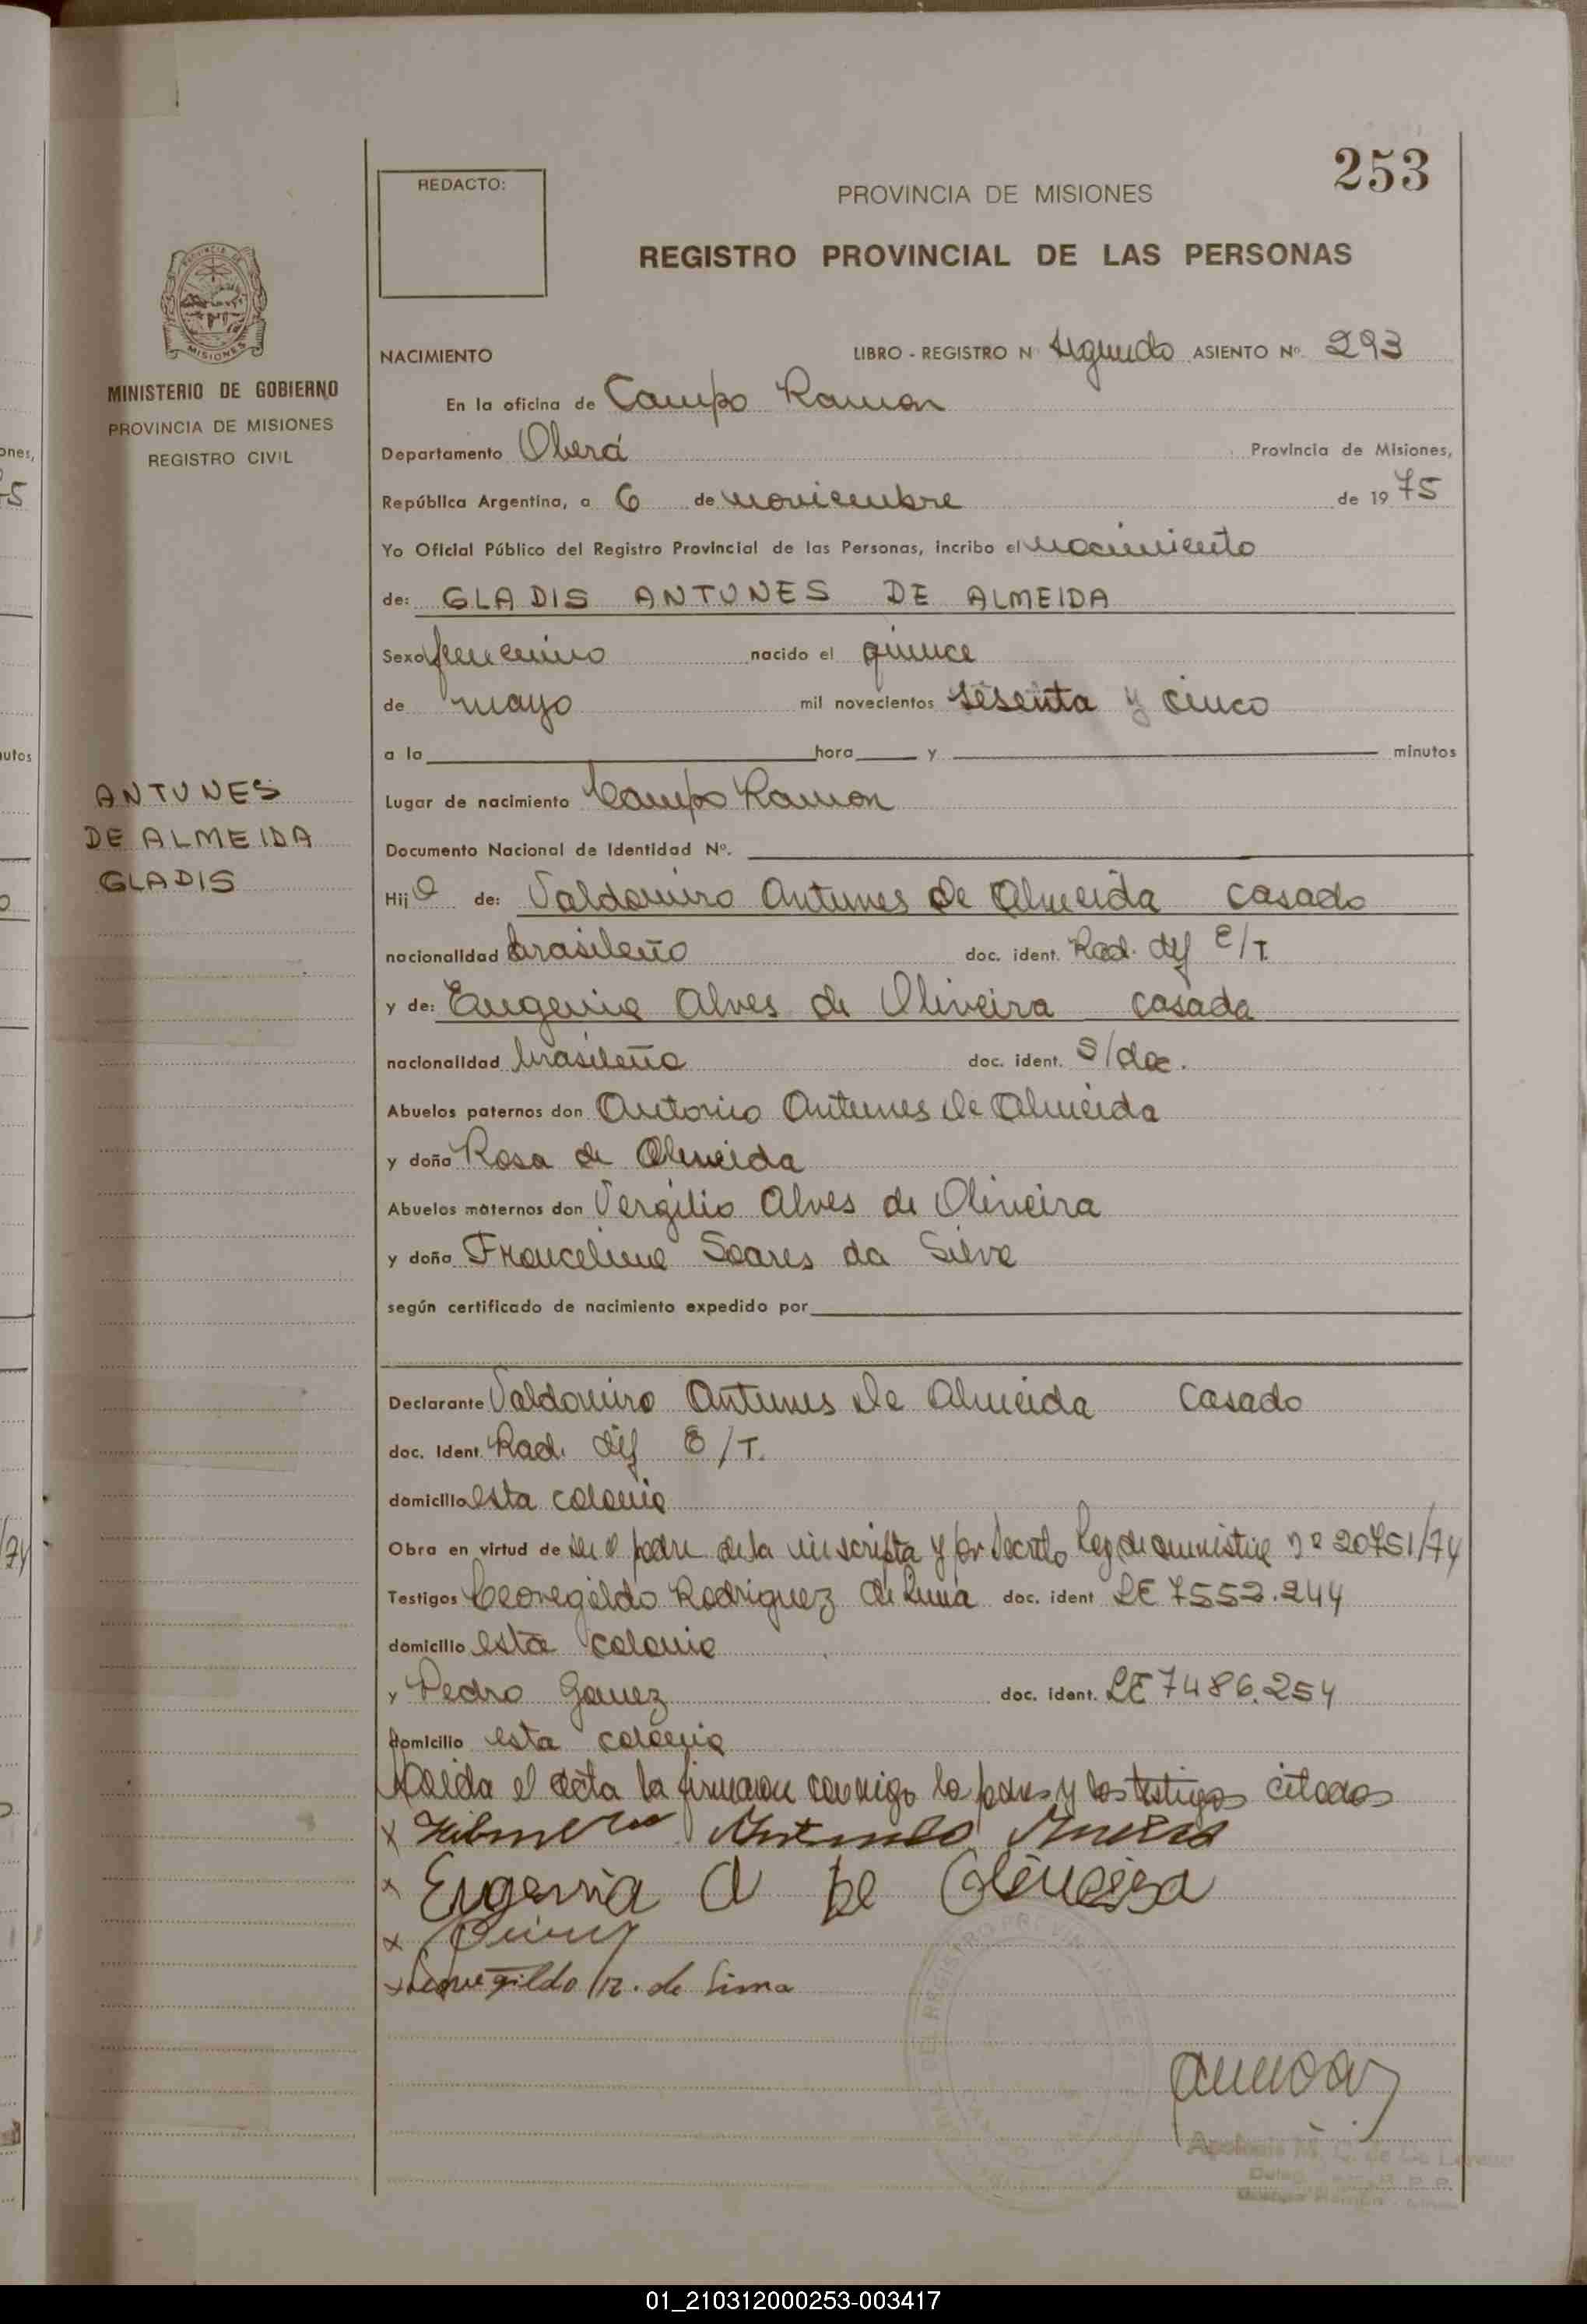 253
REDACTO:
PROVINCIA DE MISIONES
REGISTRO PROVINCIAL DE LAS PERSONAS
MISIONES
MINISTERIO DE GOBIERNO
PROVINCIA DE MISIONES
REGISTRO CIVIL
NACIMIENTO LIBRO - REGISTRO Nº segundo ASIENTO Nº 293
En la oficina de Campo Ramon
Departamento Oberá Provincia de Misiones,
República Argentina, a 6 de noviembre de 1975
Yo Oficial Público del Registro Provincial de las Personas, incribo el nacimiento
de: GLADIS ANTUNES DE ALMEIDA
Sexo femenino nacido el quince
de mayo mil novecientos sesenta y cinco
a la hora y minutos
ANTUNES
DE ALMEIDA
GLADIS
Lugar de nacimiento Campo Ramon
Documento Nacional de Identidad Nº.
Hija de: Valdomiro Antunes De Almeida casado
nacionalidad brasileño doc. ident. Rad. def E/T.
y de: Eugenia Alves de Oliveira casada
nacionalidad brasileña doc. ident. S/doc.
Abuelos paternos don Antonio Antunes De Almeida
y doña Rosa de Almeida
Abuelos maternos don Vergilio Alves de Oliveira
y doña Francelina Soares da Silva
según certificado de nacimiento expedido por
Declarante Valdomiro Antunes De Almeida casado
doc. Ident. Rad. def E/T.
domicilio esta colonia
Obra en virtud de ser el padre de la inscripta y por Decreto Ley de amnistia nº 20751/74
Testigos Rodriguez de Lima doc. ident LE 7552.244
domicilio esta colonia
y Pedro doc. ident. LE 7486.254
domicilio esta colonia
Leida el acta la firman conmigo los padres y los testigos citados
x
x Eugenia A De Oliveira
x
x R. de Lima